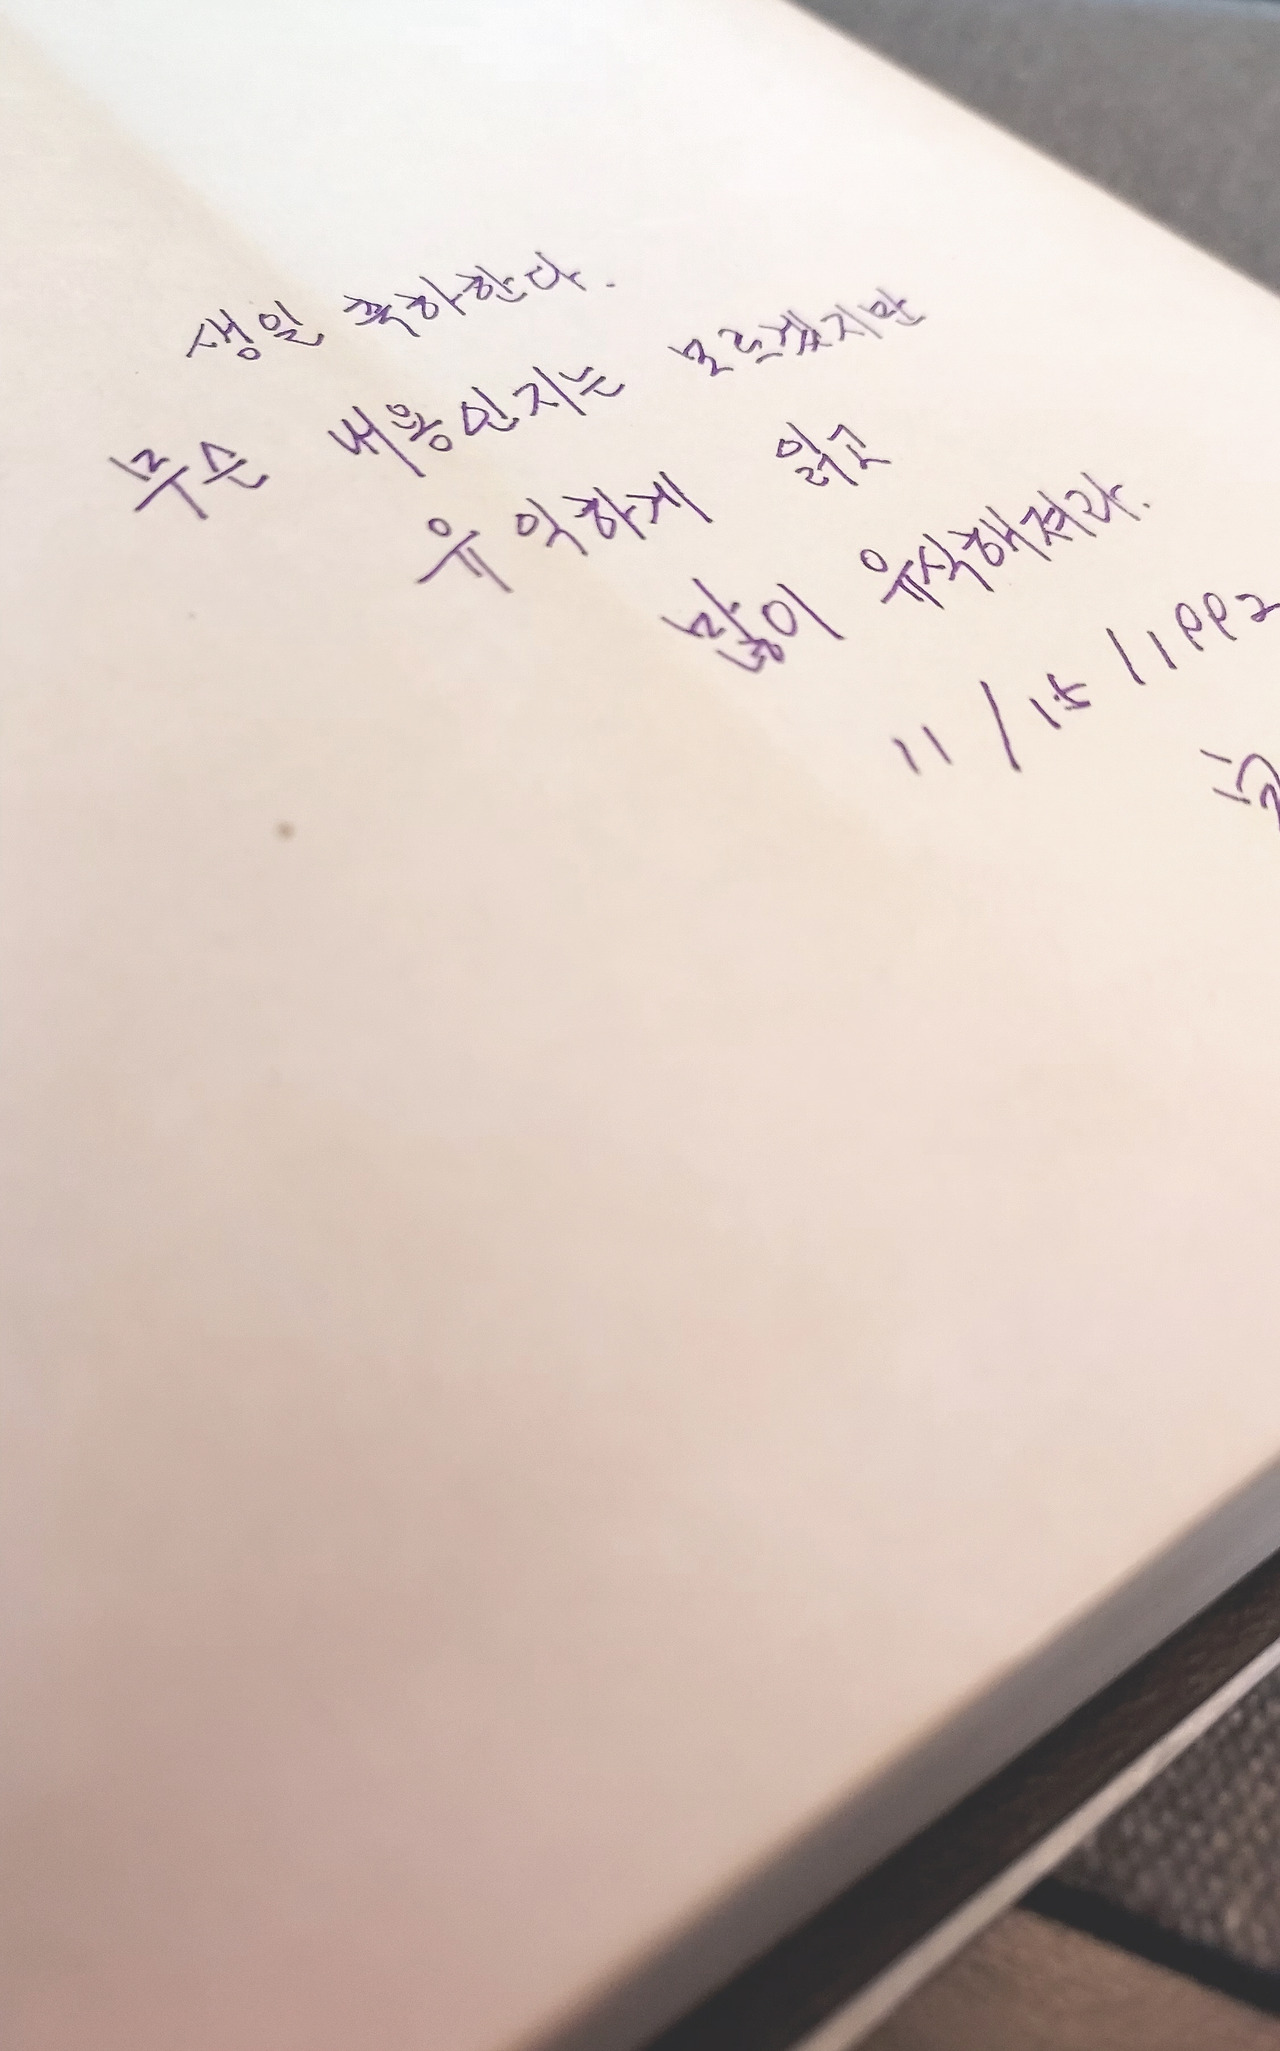 생일 축하한다.
무슨 내용인지는 모르겠지만
유익하게 읽고
많이 유식해져라.
11/15 1992